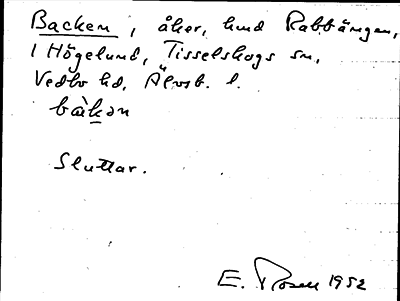 Backen, åker, hmd Rabbängen,
1 Högelund, Tisselskogs sn,
Vedbo hd, Älvsb. l.
bàkən
Sluttar.
E. Rosell 1952